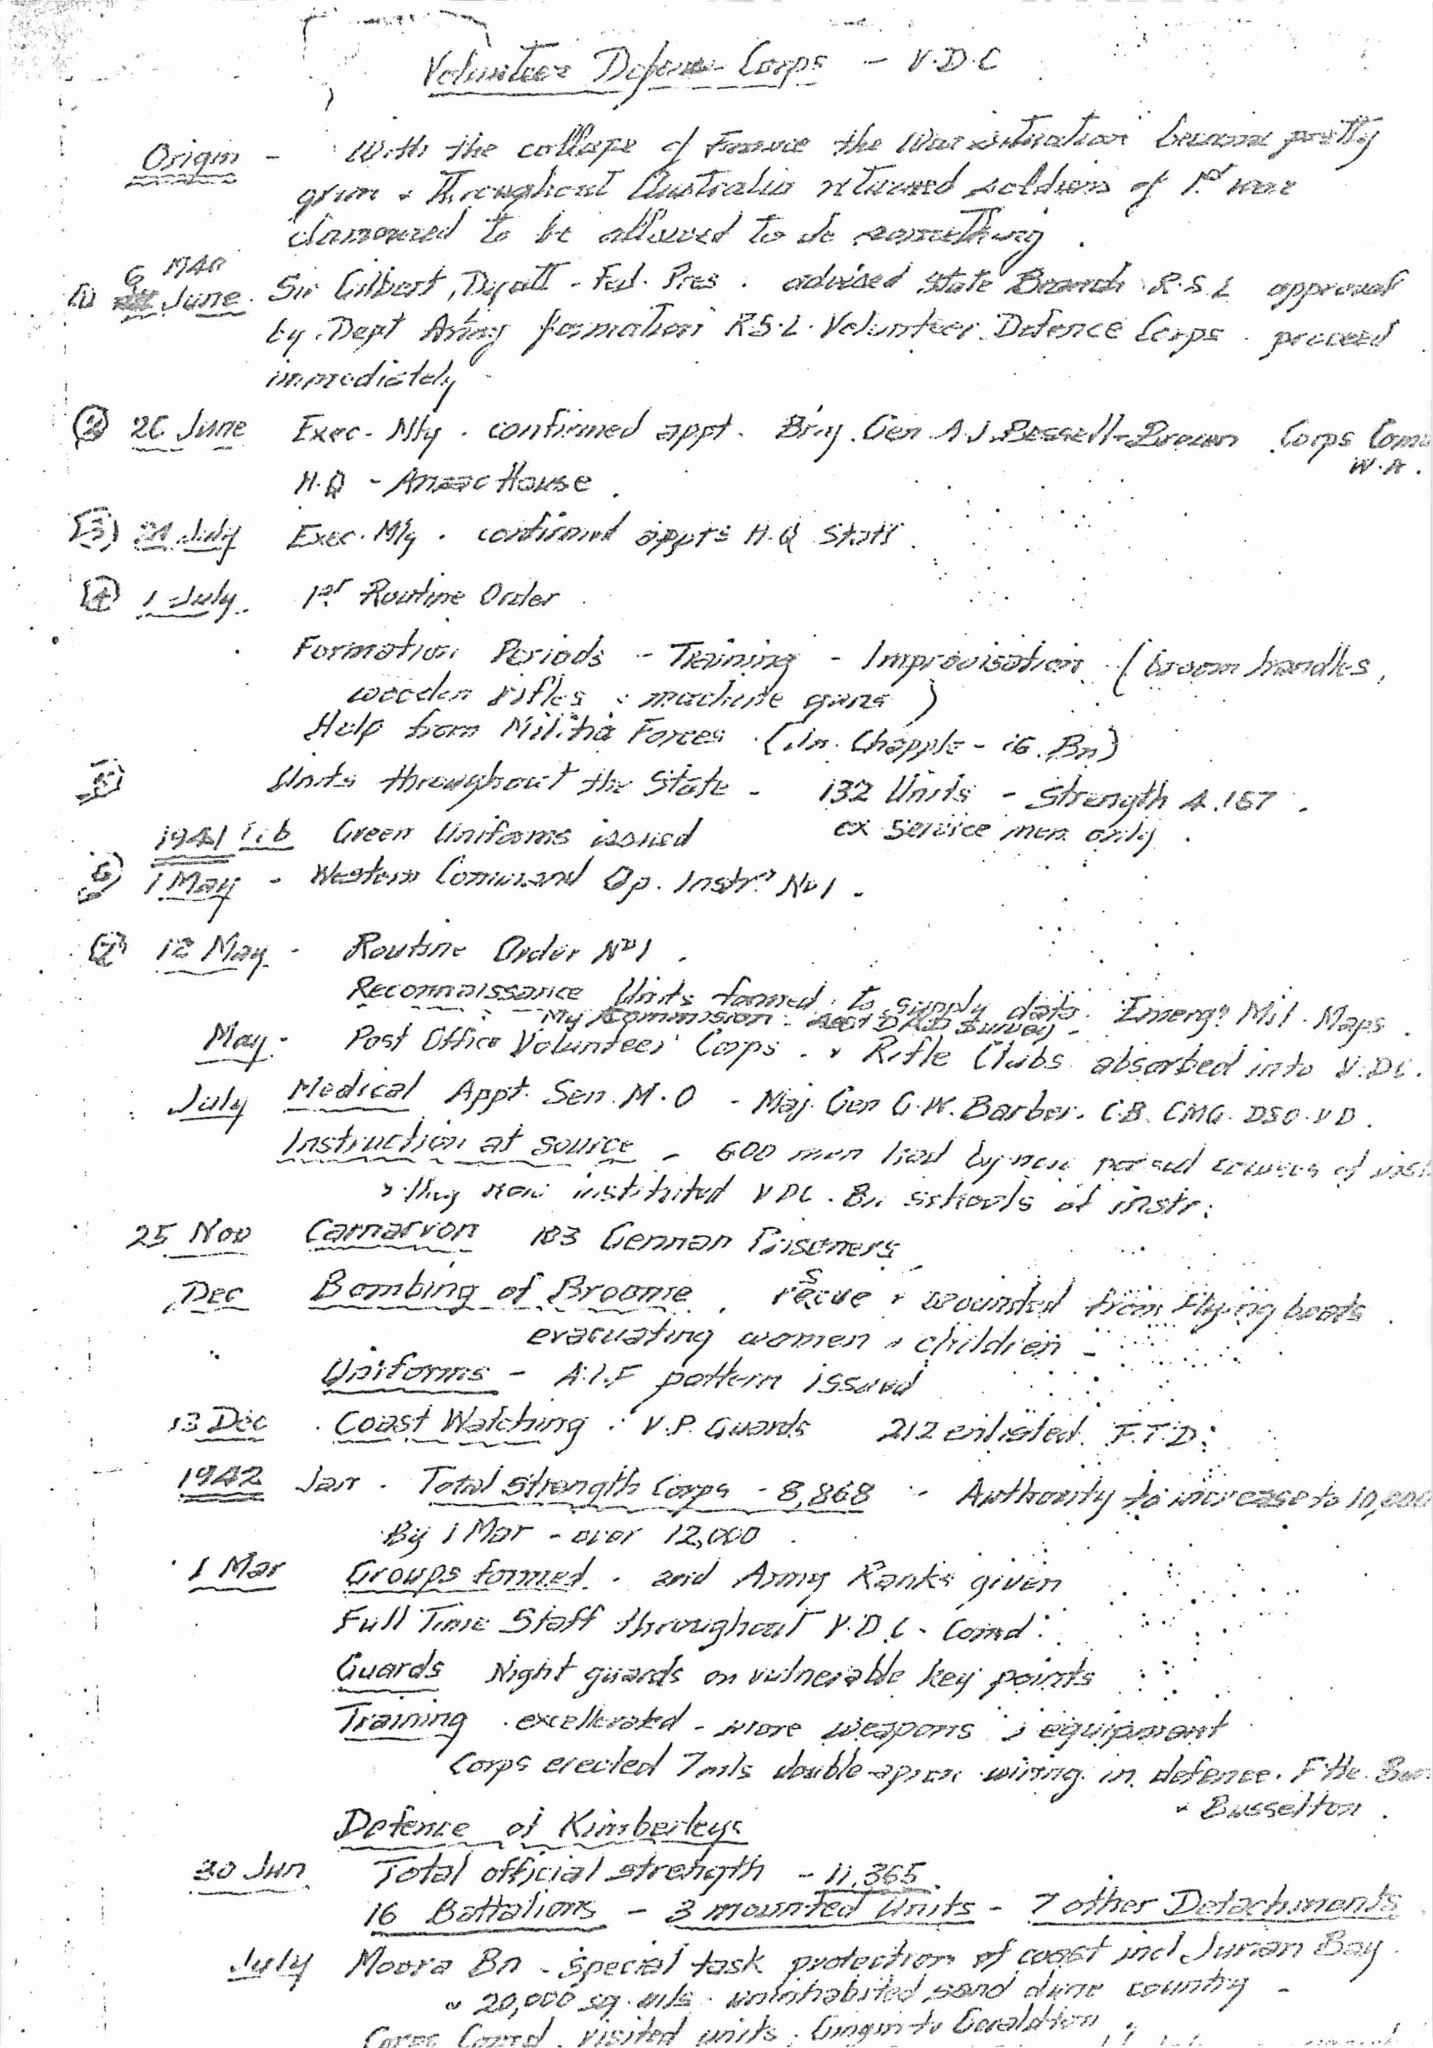 Volunteer Defence Corps - V.D.C
Origin - With the collapse of France the War situation became pretty
grim & throughout Australia returned soldiers of 1st war
clamoured to be allowed to do something.
(1) 6 June 1940 Sir Gilbert Dyett - Fed. Pres. advised State Branch R.S.L approval
by Dept Army formation R.S.L. Volunteer Defence Corps. proceed
immediately
(2) 26 June Exec. Mtg. confirmed appt. Brig. Gen A.J. Bessell-Brown Corps Com
W.A.
H.Q - Anzac House.
(3) July Exec. Mtg. confirmed appts H.Q Staff.
(4) 1 July. 1st Routine Order
Formation Periods - Training - Improvisation (broom handles,
wooden rifles & machine guns)
Help from Militia Forces. (Chapple - 16. Bn)
(5) Units throughout the State - 132 Units - Strength 4.167.
1941 Feb Green Uniforms issued ex service men only.
(6) 1 May - Western Command Op. Instrn No 1.
(7) 12 May - Routine Order No 1.
Reconnaissance Units formed to supply data Emergy Mil. Maps.
My Commission D Survey -
May - Post Office Volunteer Corps. & Rifle Clubs absorbed into V.D.C.
July Medical Appt. Sen. M.O - Maj. Gen G.W. Barber. C.B. CMG. DSO. VD.
Instruction at source - 600 men had by now passed courses of inst
& they now instituted VDC. Bn schools of instr.
25 Nov Carnarvon 183 German Prisoners
Dec Bombing of Broome. rescue & wounded from Flying boats.
evacuating women & children -
Uniforms - A.I.F pattern issued
13 Dec. Coast Watching. V.P. Guards 212 enlisted F.T.D.
1942 Jan. Total strength Corps - 8,868 - Authority to increase to 10,000
By 1 Mar - over 12,000.
1 Mar Groups formed. and Army Ranks given
Full Time Staff throughout V.D.C. Comd.
Guards Night guards on vulnerable key points
Training. excellerated - more weapons & equipment
Corps erected 7 mls double apron wiring in defence. F'tle. Bun
& Busselton.
Defence of Kimberleys
30 Jun Total official strength - 11,365.
16 Battalions - 3 mounted Units - 7 other Detachments.
July Moora Bn - special task protection of coast incl Jurian Bay.
& 20,000 sq. mls. uninhabited sand dune country -
Corps Comd. visited units. Gingin to Geraldton